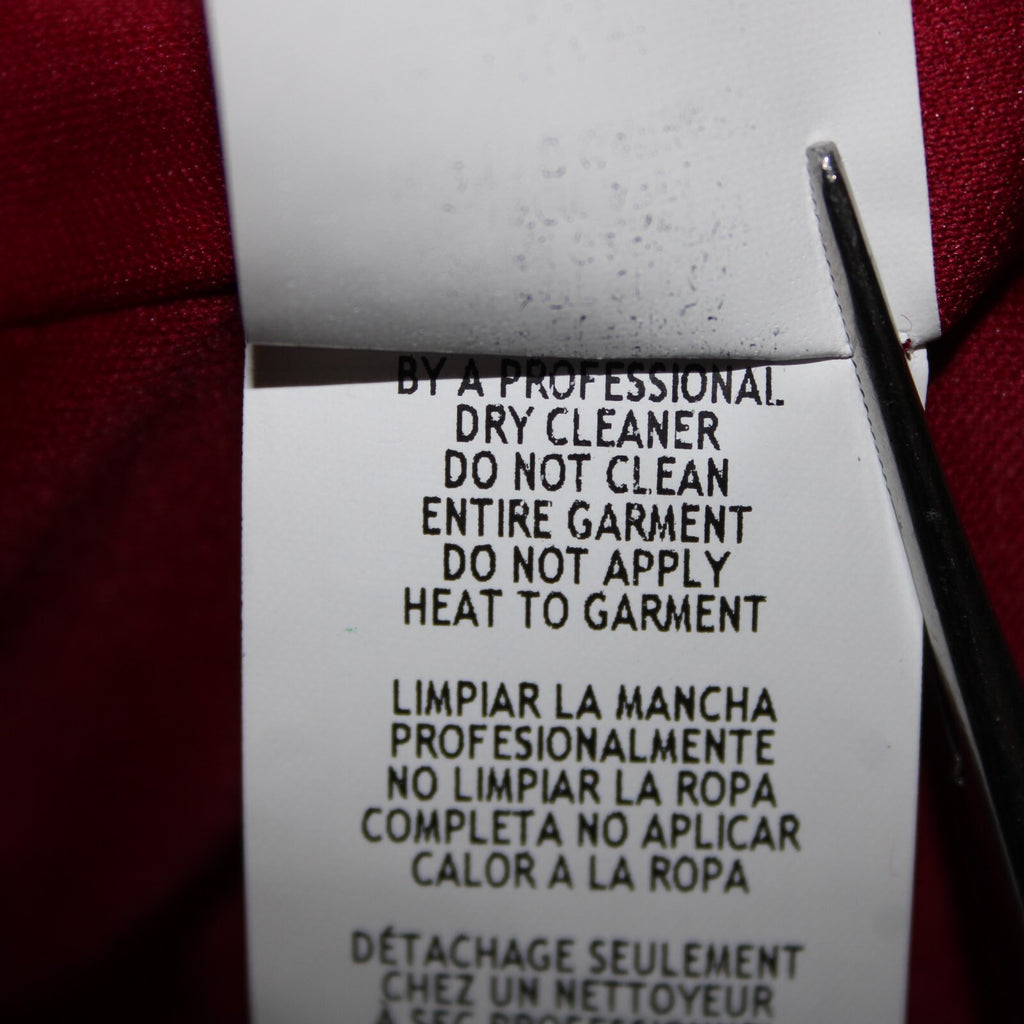 BY A PROFESSIONAL
DRY CLEANER
DO NOT CLEAN
ENTIRE GARMENT
DO NOT APPLY
HEAT TO GARMENT
LIMPIAR LA MANCHA
PROFESIONALMENTE
NO LIMPIAR LA ROPA
COMPLETA NO APLICAR
CALOR A LA ROPA
DÉTACHAGE SEULEMENT
CHEZ UN NETTOYEUR
À SEC